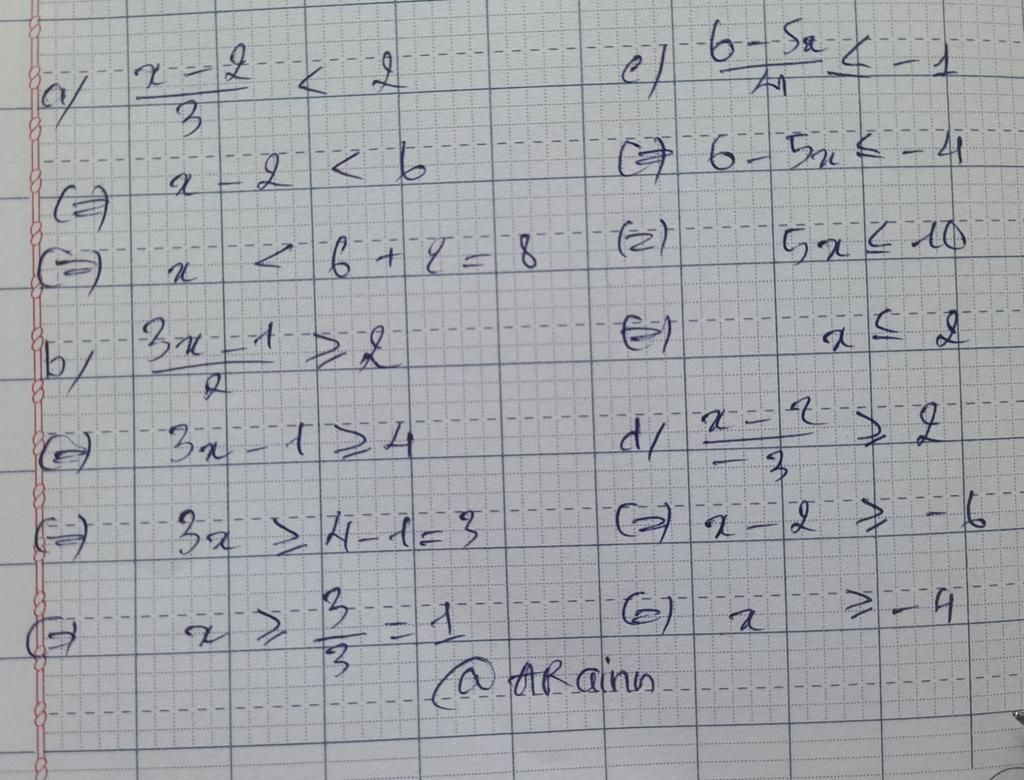 a/ (x - 2)/3 < 2
(=) x - 2 < 6
(=) x < 6 + 2 = 8
b/ (3x - 1)/2 ≥ 2
(=) 3x - 1 ≥ 4
(=) 3x ≥ 4 - 1 = 3
(=) x ≥ 3/3 = 1
c/ (6 - 5x)/4 ≤ - 1
(=) 6 - 5x ≤ - 4
(=) 5x ≤ 10
(=) x ≤ 2
d/ (x - 2)/(- 3) ≥ 2
(=) x - 2 ≥ - 6
(=) x ≥ - 4
@ARainn